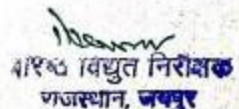 वरिष्ठ विद्युत निरीक्षक
राजस्थान, जयपुर